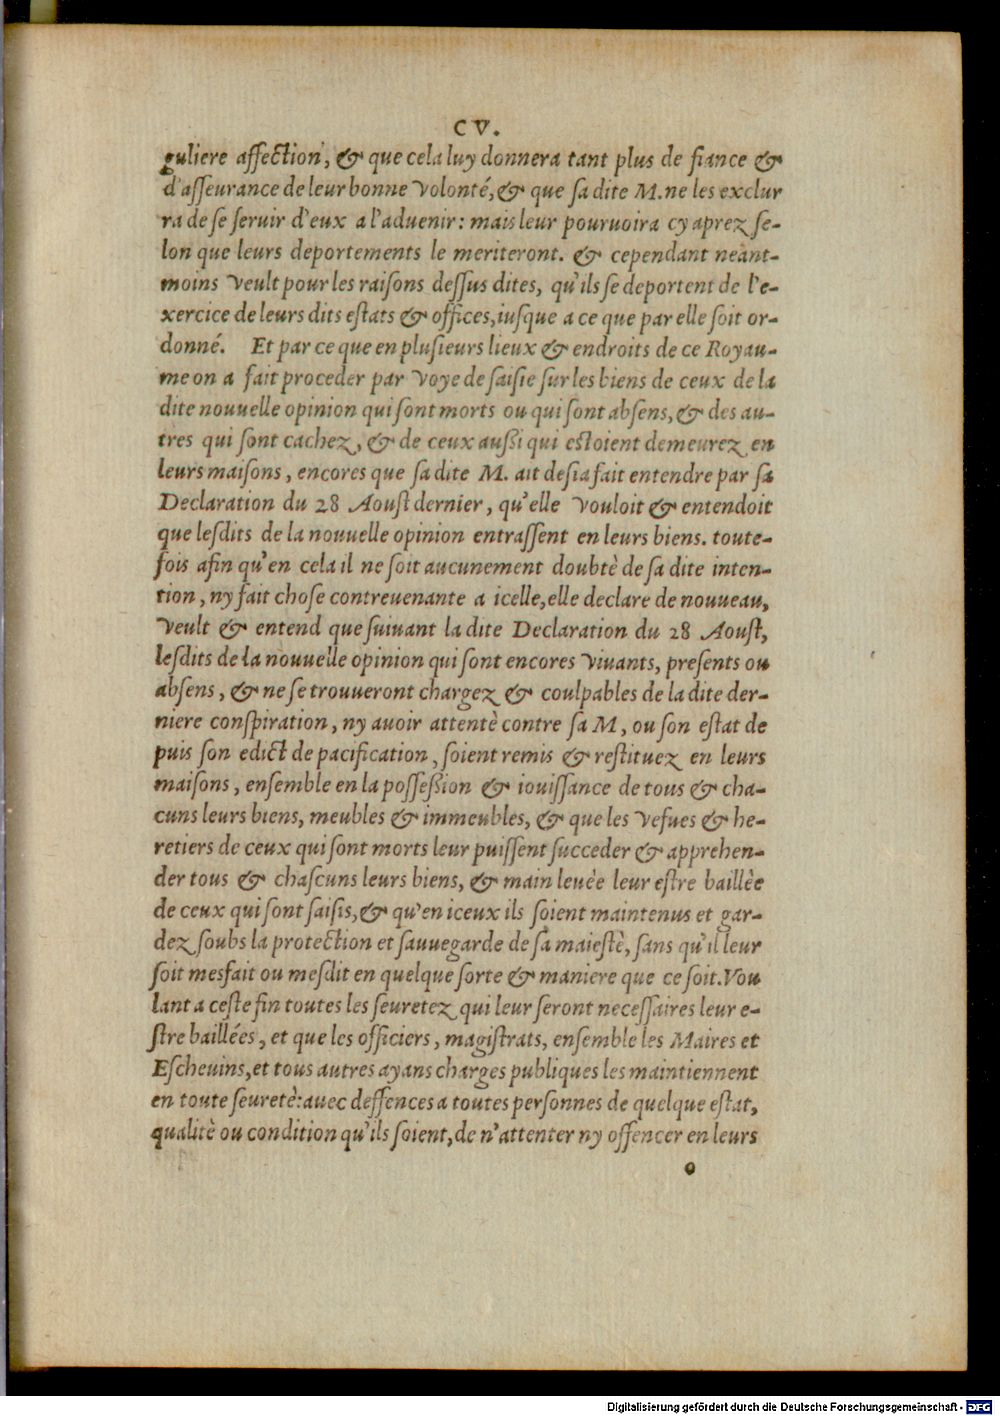 CV.
guliere affection, & que cela luy donnera tant plus de fiance &
d'asseurance de leur bonne volonté, & que sa dite M. ne les exclur
ra de se seruir d'eux a l'aduenir: mais leur pouruoira cy aprez se-
lon que leurs deportements le meriteront. & cependant neant-
moins veult pour les raisons dessus dites, qu'ils se deportent de l'e-
xercice de leurs dits estats & offices, iusque a ce que par elle soit or-
donné. Et par ce que en plusieurs lieux & endroits de ce Royau-
me on a fait proceder par voye de saisie sur les biens de ceux de la
dite nouuelle opinion qui sont morts ou qui sont absens, & des au-
tres qui sont cachez, & de ceux aussi qui estoient demeurez en
leurs maisons, encores que sa dite M. ait desia fait entendre par sa
Declaration du 28 Aoust dernier, qu'elle vouloit & entendoit
que lesdits de la nouuelle opinion entrassent en leurs biens. toute-
fois afin qu'en cela il ne soit aucunement doubtè de sa dite inten-
tion, ny fait chose contreuenante a icelle, elle declare de nouueau,
veult & entend que suiuant la dite Declaration du 28 Aoust,
lesdits de la nouuelle opinion qui sont encores viuants, presents ou
absens, & ne se trouueront chargez & coulpables de la dite der-
niere conspiration, ny auoir attentè contre sa M, ou son estat de
puis son edict de pacification, soient remis & restituez en leurs
maisons, ensemble en la possession & iouissance de tous & cha-
cuns leurs biens, meubles & immeubles, & que les vefues & he-
retiers de ceux qui sont morts leur puissent succeder & apprehen-
der tous & chascuns leurs biens, & main leuèe leur estre baillèe
de ceux qui sont saisis, & qu'en iceux ils soient maintenus et gar-
dez soubs la protection et sauuegarde de sa maiestè, sans qu'il leur
soit mesfait ou mesdit en quelque sorte & maniere que ce soit. Vou
lant a ceste fin toutes les seuretez qui leur seront necessaires leur e-
stre baillées, et que les officiers, magistrats, ensemble les Maires et
Escheuins, et tous autres ayans charges publiques les maintiennent
en toute seuretè: auec deffences a toutes personnes de quelque estat,
qualitè ou condition qu'ils soient, de n'attenter ny offencer en leurs
o
Digitalisierung gefördert durch die Deutsche Forschungsgemeinschaft - DFG